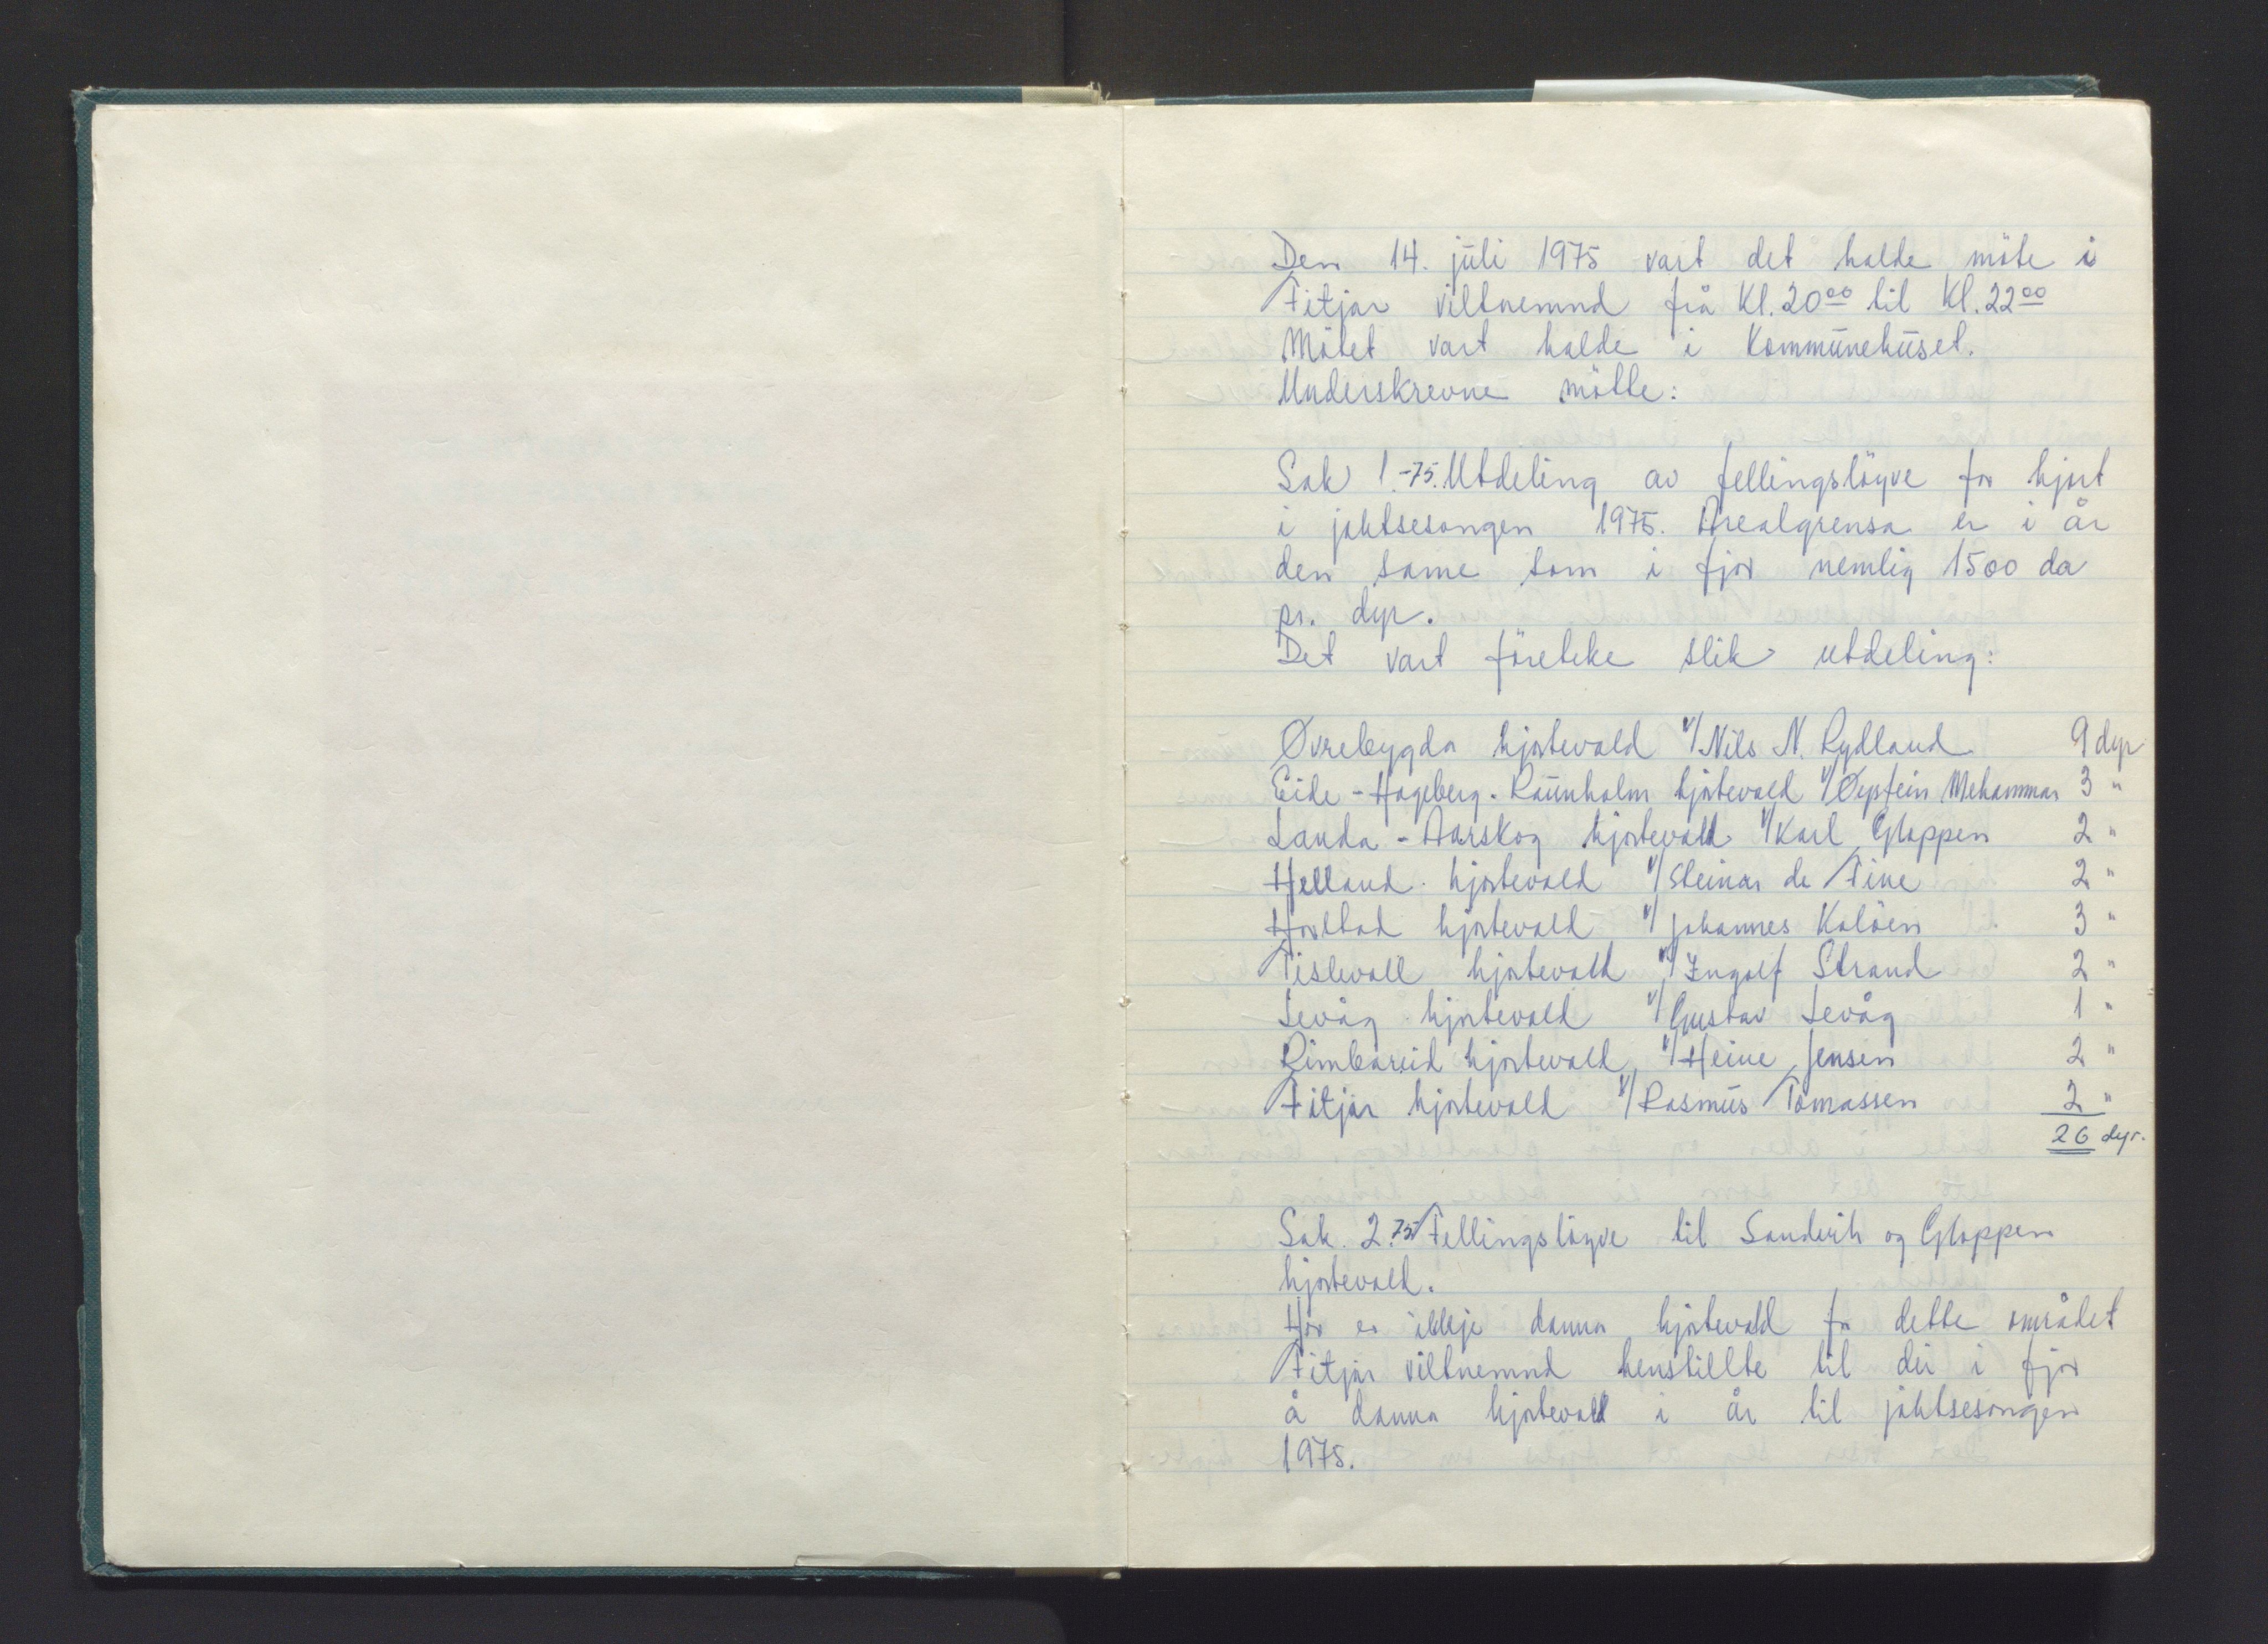 Den 14. jüli 1975 vart det halde möte i
Fitjar viltnemnd frå Kl. 20⁰⁰ til Kl. 22⁰⁰
Mötet vart halde i Kommünehüset.
Underskrevne mötte:
Sak 1.-75. Utdeling av fellingslöyve for hjort
i jaktsesongen 1975. Arealgrensa er i år
den same som i fjor nemlig 1500 da
pr. dyr.
Det vart företeke slik utdeling:
Øvrebygda hjortevald v/ Nils N. Rydland 9 dyr
Eide - Hageberg - Raünholm hjortevald v/ Øystein Mehammar 3 "
Landa - Aarskog hjortevald v/ Karl Gloppen 2 "
Helland hjortevald v/ Steinar de Fine 2 "
Havltad hjortevald v/ Johannes Kalöen 3 "
Tislevoll hjortevald v/ Ingolf Strand 2 "
Levåg hjortevald v/ Gustav Levåg 1 "
Rimbareid hjortevald v/ Heine Jensen 2 "
Fitjar hjortevald v/ Rasmüs Tomassen 2 "
26 dyr.
Sak. 2.75 Fellingslöyve til Sandvik og Gloppen
hjortevald.
Her er ikkje danna hjortevald for dette området
Fitjar viltnemnd henstillte til dei i fjor
å danna hjortevald i år til jaktsesongen
1975.